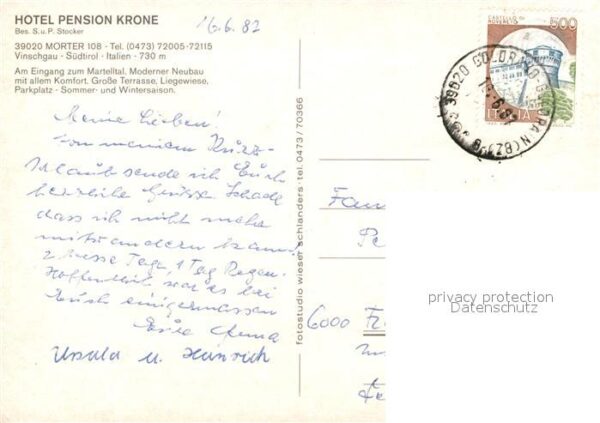 HOTEL PENSION KRONE
Bes. S. u. P. Stocker
39020 MORTER 108 - Tel. (0473) 72005-72115
Vinschgau - Südtirol - Italien - 730 m
Am Eingang zum Martelltal. Moderner Neubau
mit allem Komfort. Große Terrasse, Liegewiese,
Parkplatz - Sommer- und Wintersaison.
16.6.82
Meine Lieben!
Von meinem Kurz-
Urlaub sende ich Euch
herzliche Grüsse. Schade
dass ich nicht mehr
wandern kann!
2 heisse Tage, 1 Tag Regen.
Hoffentlich war es bei
Euch einigermassen
Eure
Ursula u. Heinrich
fotostudio wieser schlanders · tel. 0473 / 70366
CASTELLO DI ROVERETO
500
ITALIA
39020
6000
privacy protection
Datenschutz